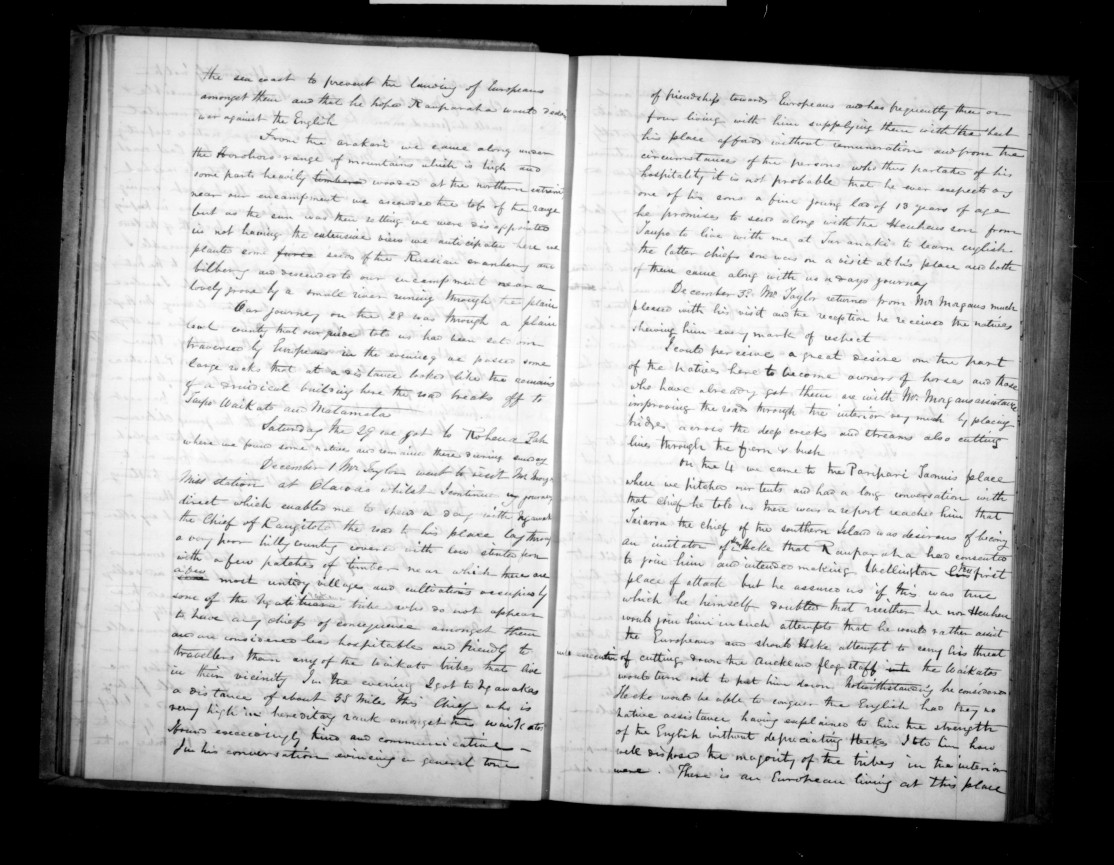 the sea coast to prevent the landing of Europeans
amongst them and that he hoped Rauparaha would declare
war against the English
From the arakari we came along under
the Horohoro range of mountains which is high and
some parts heavily timbered wooded at the northern extremity
near our encampment we ascended the top of the range
but as the sun was then setting we were disappointed
in not having the extensive view we anticipated here we
planted some seeds of the Russian cranberry and
bilberry and descended to our encampment near a
lovely grove by a small river running through the plain
Our journey on the 28 was through a plain
level country that our guide told us had been seldom
traversed by Europeans in the evening we passed some
large rocks that at a distance looked like the remains
of a druidical building here the road breaks off to
Taupo Waikato and Matamata
Saturday the 29 we got to Pah
where we found some natives and remained there during sunday
December 1 Mr Taylor went to visit Mr Morgans
Miss station at Otawao whilst I continued my journey
direct which enabled me to spend a day with
the Chief of Rangitoto the road to his place lay through
a very poor hilly country covered with low stunted fern
with a few patches of timber near which there are
a few most untidy villages and cultivations occupied by
some of the tribe who do not appear
to have any chiefs of consequence amongst them
and are considered less hospitable and friendly to
travellers than any of the Waikato tribes that live
in their vicinity In the evening I got to
a distance of about 35 miles this Chief who is
very high in hereditary rank amongst the Waikatos
I found exceedingly kind and communicative –
In his conversation evincing a general tone
of friendship towards Europeans and has frequently three or
four living with him supplying them with the best
his place affords without remuneration and from the
circumstances of the persons who thus partake of his
hospitality it is not probable that he ever expects any
one of his sons a fine young lad of 13 years of age
he promised to send along with the Heuheus son from
Taupo to live with me at Taranaki to learn english
the latter chiefs son was on a visit at his place and both
of them came along with us days journey
December 3. Mr Taylor returned from Mr Morgans much
pleased with his visit and the reception he received the natives
shewing him every mark of respect
I could perceive a great desire on the part
of the Natives here to become owners of horses and those
who have already got them are with Mr. Morgans assistance
improving the roads through the interior very much by placing
bridges across the deep creeks and streams also cutting
lines through the fern & bush
On the 4 we came to the Paripari Taonuis place
where we pitched our tents and had a long conversation with
that chief he told us there was a report reached him that
Taiaroa the chief of the southern Island was desirous of becoming
an imitator of Heke that Rauparaha had consented
to join him and intended making Wellington the first
place of attack but he assured us if this was true
which he himself doubted that neither he nor Heuheu
would join him in such attempts that he would rather assist
the Europeans and should Heke attempt to carry his threat
into execution of cutting down the Auckland flag staff the Waikatos
would turn out to put him down. Notwithstanding he considered
Heke would be able to conquer the English had they no
native assistance having explained to him the strength
of the English without depreciating Hekes I told him how
well disposed the majority of the tribes in the interior
were. There is an European living at this place